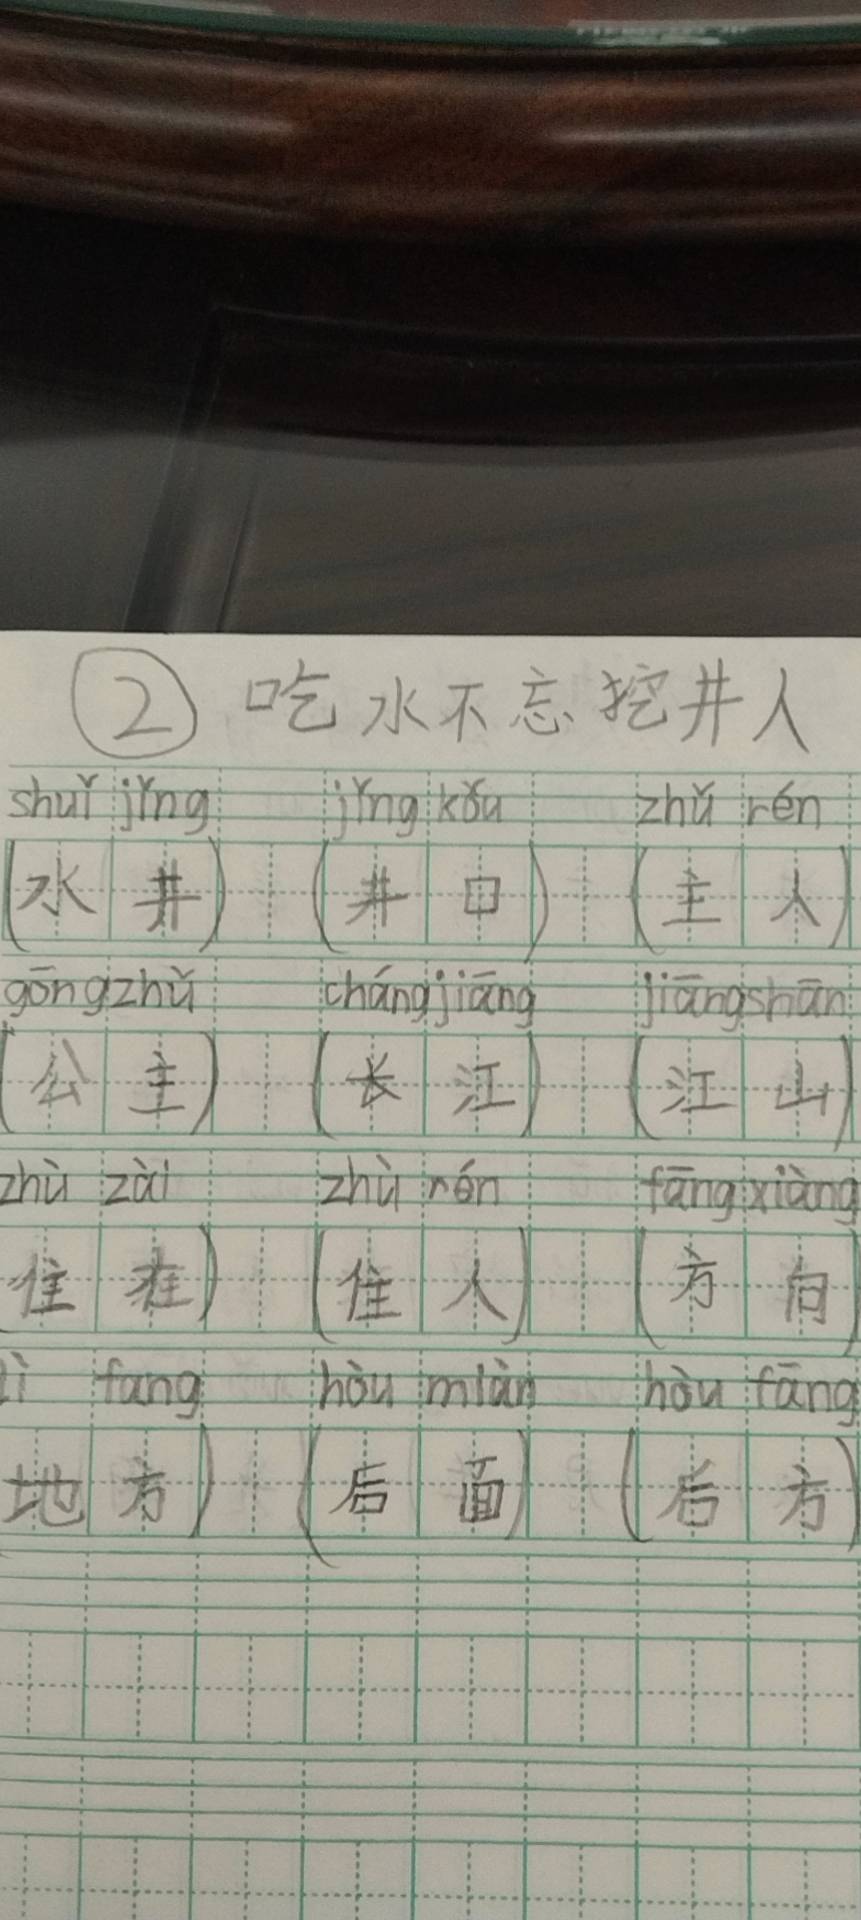 ② 吃水不忘挖井人
shuǐ jǐng jǐng kǒu zhǔ rén
(水井) (井口) (主人)
gōng zhǔ cháng jiāng jiāng shān
(公主) (长江) (江山)
zhù zài zhù rén fāng xiàng
住在) (住人) (方向)
fang hòu miàn hòu fāng
地方) (后面) (后方)